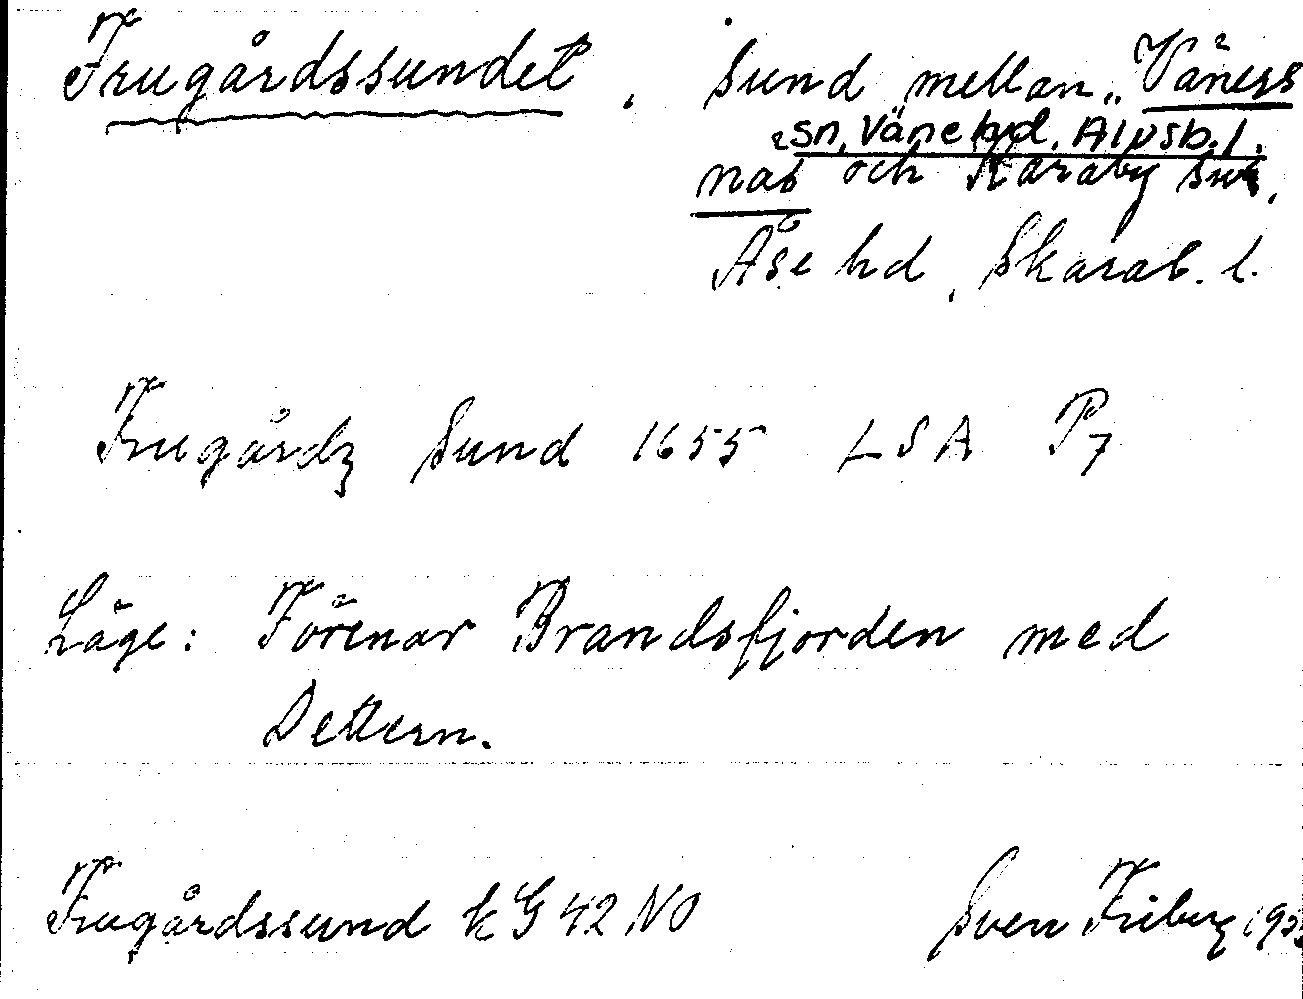 Frugårdssundet, Sund mellan Väners
sn, Väne hd. Älvsb. l.
näs och Karaby snr,
Åse hd, Skarab. l.
Frugårdz Sund 1655 LSA P7
Läge: Förenar Brandsfjorden med
Dettern.
Frugårdssund kG 42 NO Sven Friberg